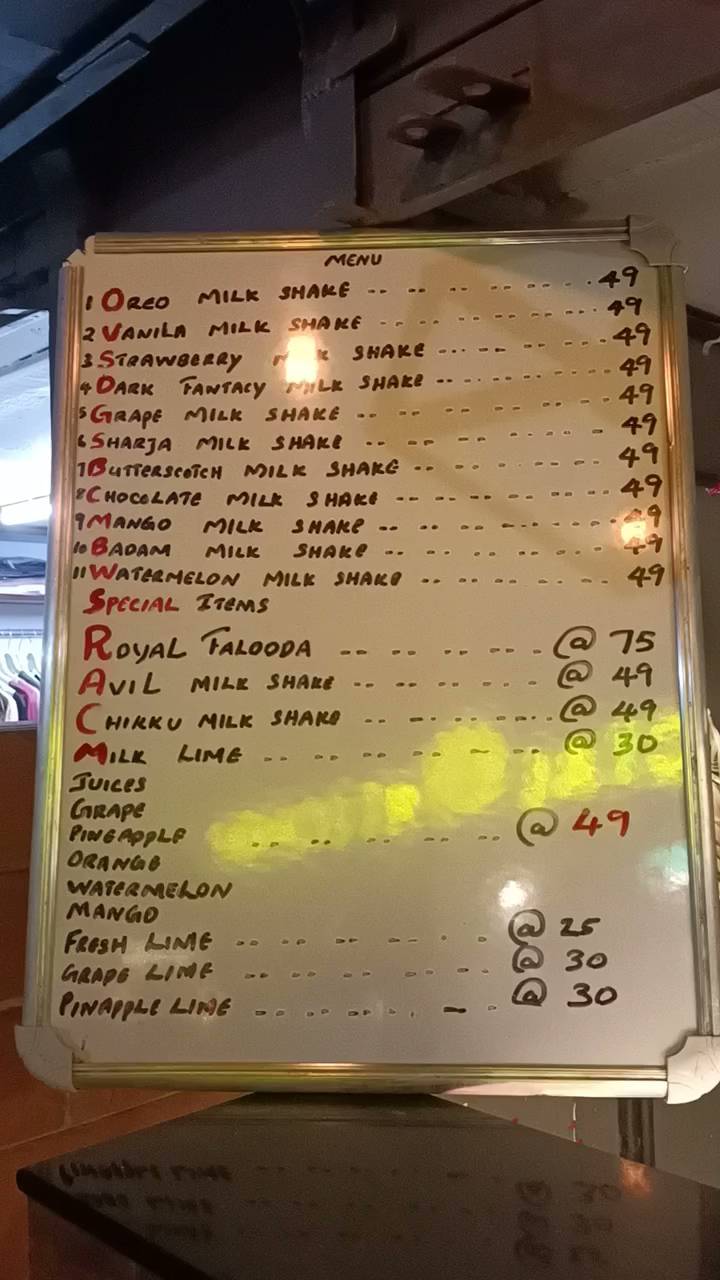 MENU
1 OREO MILK SHAKE -- -- -- ---- . 49
2 VANILA MILK SHAKE -- -- -- -- -- 49
3 STRAWBERRY MILK SHAKE --- -- ---- 49
4 DARK FANTACY MILK SHAKE -- ------ 49
5 GRAPE MILK SHAKE -- -- -- -- -- 49
6 SHARJA MILK SHAKE -- -- -- -- - 49
7 BUTTERSCOTCH MILK SHAKE -- -- -- -- 49
8 CHOCOLATE MILK SHAKE -- -- -- -- 49
9 MANGO MILK SHAKE -- -- -- ---- 49
10 BADAM MILK SHAKE -- -- -- -- 49
11 WATERMELON MILK SHAKE -- -- -- -- 49
SPECIAL ITEMS
ROYAL FALOODA -- -- -- -- . @ 75
AVIL MILK SHAKE -- -- -- -- @ 49
CHIKKU MILK SHAKE -- -- -- -- @ 49
MILK LIME -- -- -- -- -- @ 30
JUICES
GRAPE
PINEAPPLE -- -- -- -- @ 49
ORANGE
WATERMELON
MANGO
FRESH LIME -- -- -- -- - @ 25
GRAPE LIME -- -- -- -- - @ 30
PINAPPLE LIME -- -- -- - - @ 30